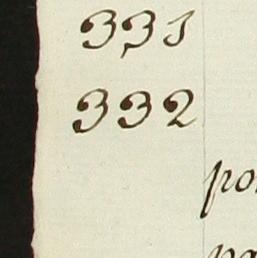 331
332
po